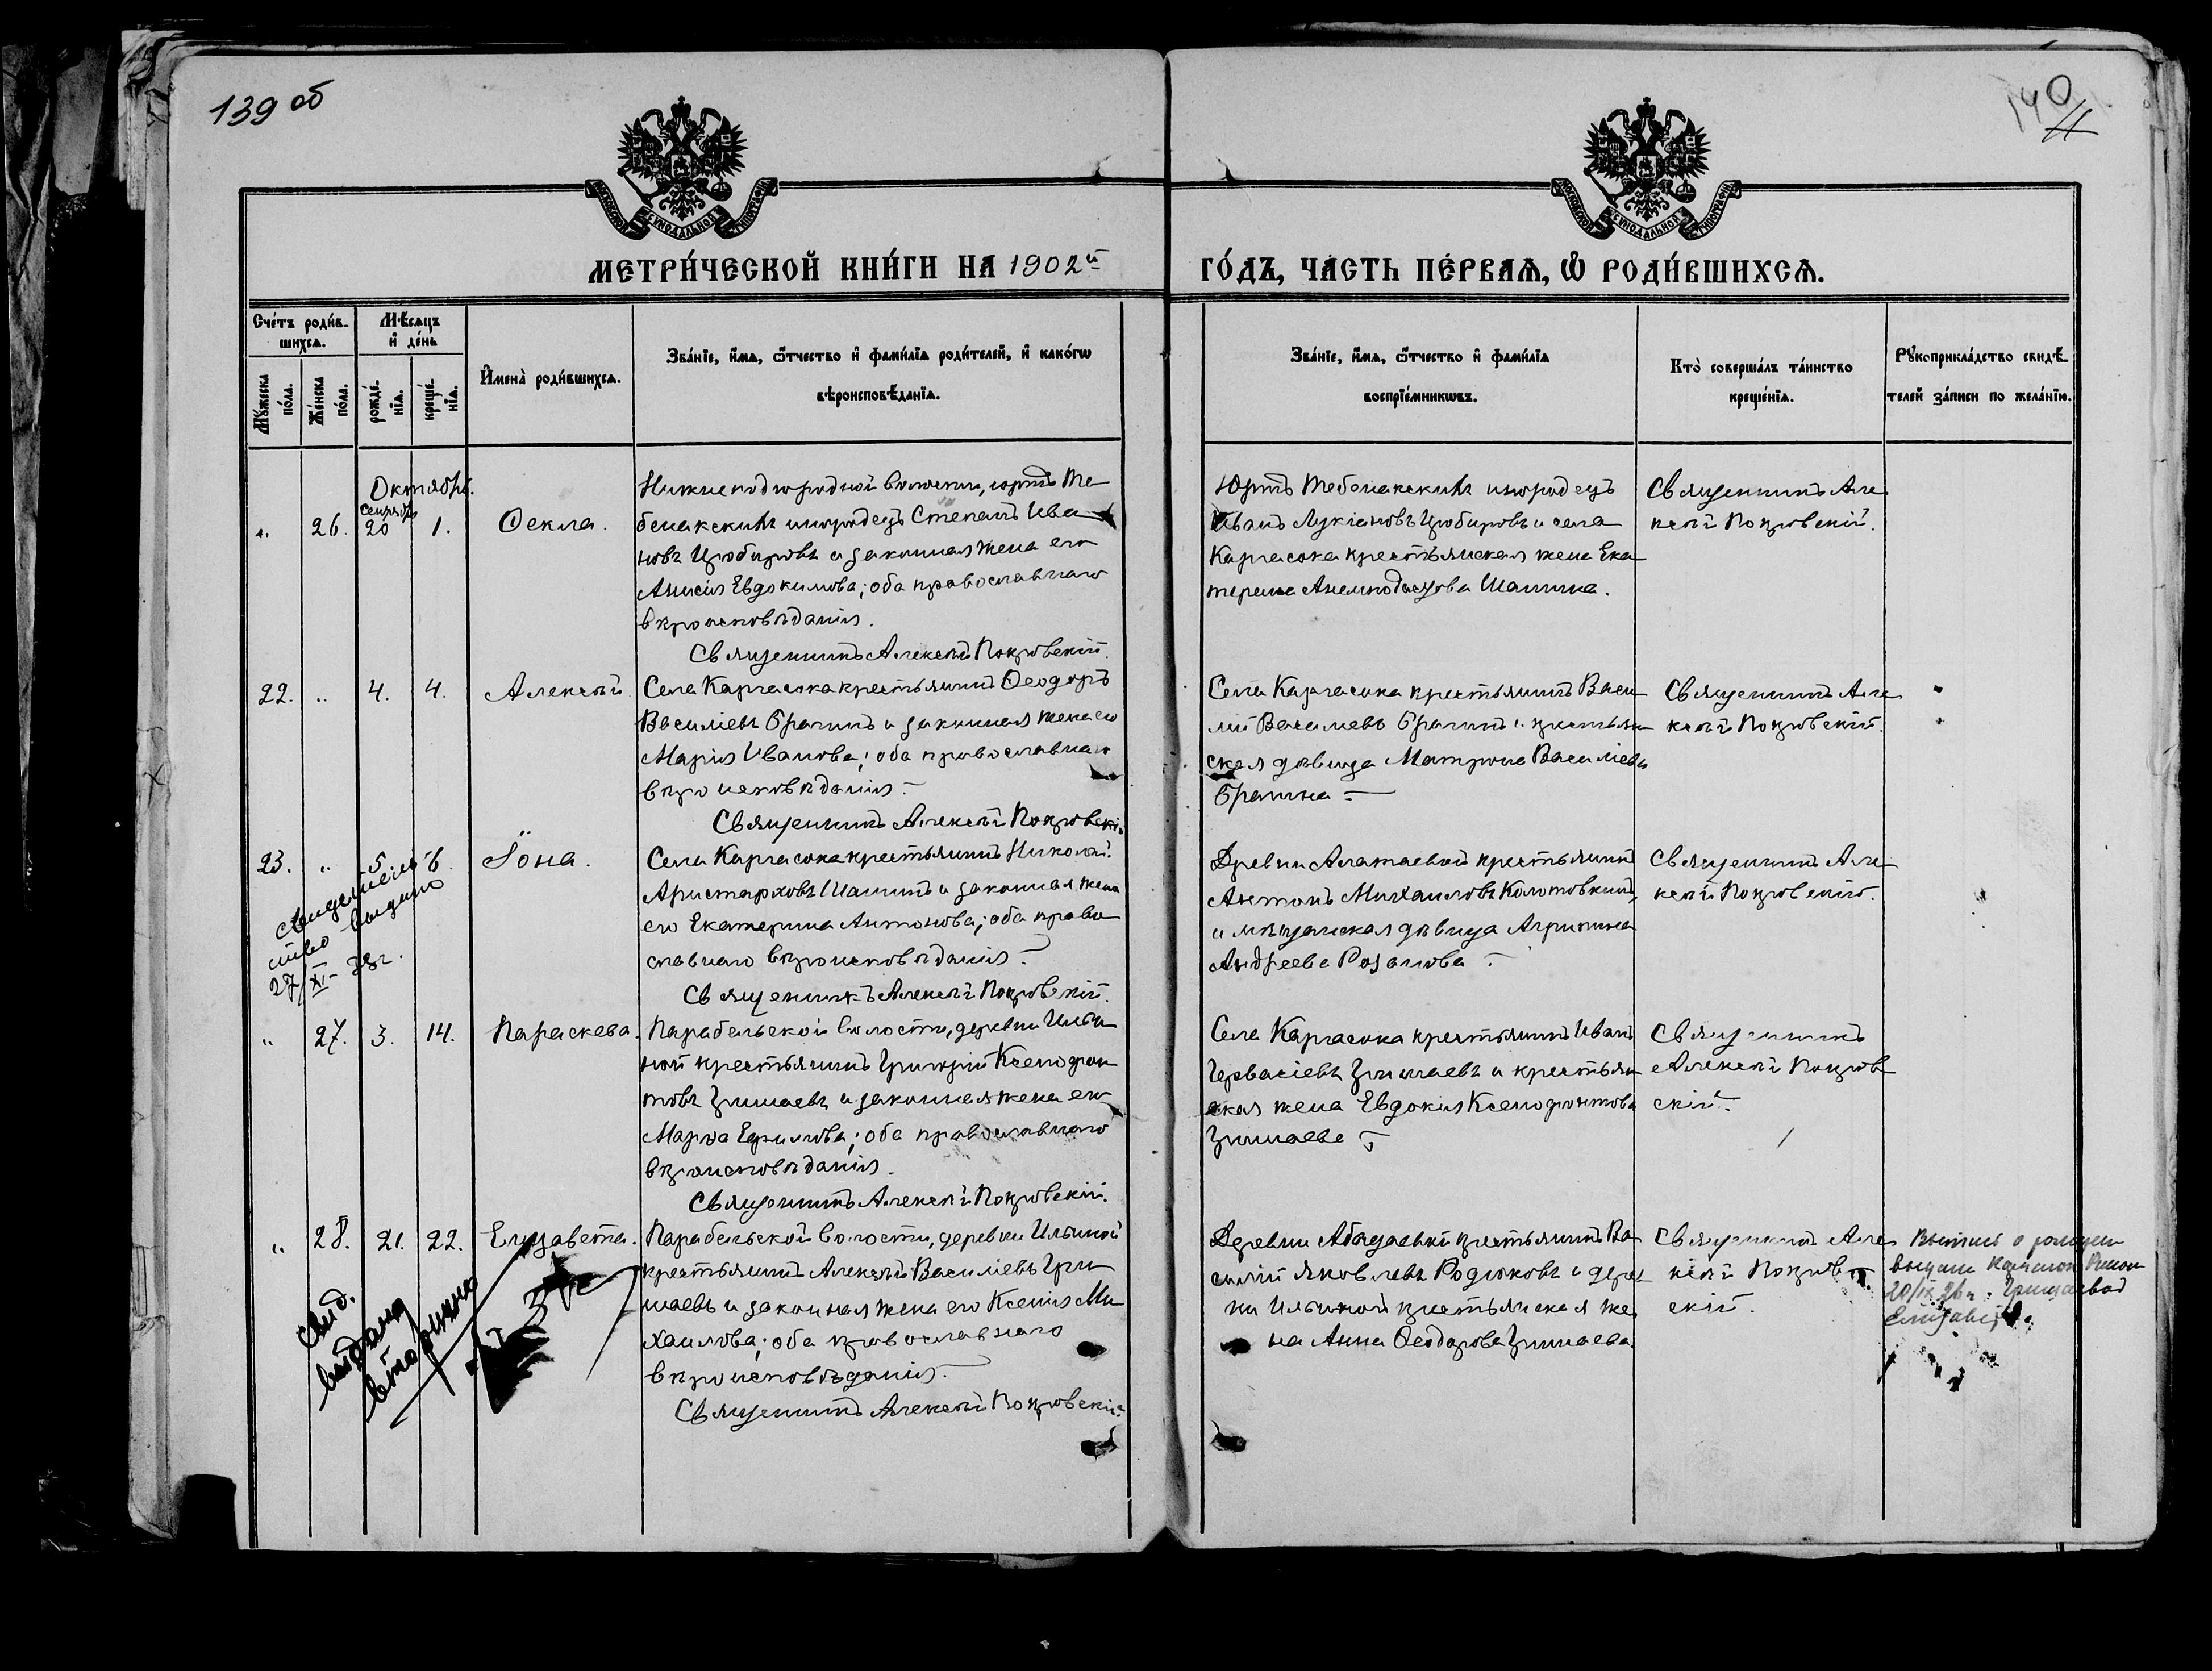 139 об
140
МЕТРИ́ЧЕСКОЙ КНИ́ГИ НА 1902й
ГО́ДЪ, ЧА́СТЬ ПЕ́РВАѦ, Ѽ РОДИ́ВШИХСѦ.
Сче́тъ роди́в-
шихсѧ.
Мꙋ́жеска
по́ла.
Же́нска
по́ла.
Мѣ́сѧцъ
и҆ де́нь
рожде́-
нїѧ.
креще́-
нїѧ.
И҆мена̀ роди́вшихсѧ.
Зва́нїе, и҆́мѧ, ѻ҆́тчество и҆ фами́лїѧ роди́телей, и҆ како́гѡ
вѣроисповѣ́данїѧ.
Зва́нїе, и҆́мѧ, ѻ҆́тчество и҆ фами́лїѧ
воспрїе́мникѡвъ.
Кто̀ соверша́лъ та́инство
креще́нїѧ.
Рꙋкоприкла́дство свидѣ́-
телей за́писи по жела́нїю.
Октябрь.
Сентябр
26. 20 1. Ѳекла.
Нижнеподгородной волости, юртъ Те-
бенакскихъ инородецъ Степанъ Ива
новъ Цюбировъ и законная жена его
Анисія Евдокимова; оба православнаго
вѣроисповѣданія.
Священникъ Алексѣй Покровскій.
Юртъ Тебенакскихъ инородецъ
Иванъ Лукіановъ Цюбировъ и села
Каргасока крестьянская жена Ека
терина Анемподистова Шанина.
Священникъ Але
ксѣй Покровскій.
22. " 4. 4. Алексѣй
Села Каргасока крестьянинъ Ѳеодоръ
Василіевъ Брагинъ и законная жена его
Марія Иванова; оба православнаго
вѣроисповѣданія.
Священникъ Алексѣй Покровскій
Села Каргасока крестьянинъ Васи
лій Василіевъ Брагинъ и крестьян
ская дѣвица Матрона Василіева
Брагина
Священникъ Але
ксѣй Покровскій.
23. " 5. 6. Іона.
свидетель
ство выдано
27/XI-38г.
Села Каргасока крестьянинъ Николай
Аристарховъ Шанинъ и законная жена
его Екатерина Антонова; оба право
славнаго вѣроисповѣданія.
Священникъ Алексѣй Покровскій.
Деревни Алатаевой крестьянинъ
Антонъ Михаиловъ Колотовкинъ,
и мѣщанская дѣвица Агрипина
Андреева Розанова
Священникъ Але
ксѣй Покровскій.
" 27. 3. 14. Параскева.
Парабельской волости, деревни Ильи
ной крестьянинъ Григорій Ксенофон
товъ Гришаевъ и законная жена его
Марѳа Ефимова; оба православнаго
вѣроисповѣданія.
Священникъ Алексѣй Покровскій.
Села Каргасока крестьянинъ Иванъ
Гервасіевъ Гришаевъ и крестьян
ская жена Евдокія Ксенофонтова
Гришаева
Священникъ
Алексѣй Покров
скій.
" 28. 21. 22. Елизавета.
Свид.
выдана
вторично
Парабельской волости, деревни Ильиной
крестьянинъ Алексѣй Василіевъ Гри
шаевъ и законная жена его Ксенія Ми
хаилова; оба православнаго
вѣроисповѣданія.
Священникъ Алексѣй Покровскій
Деревни крестьянинъ Ва
силій Яковлевъ Родюковъ и дерев
ни Ильиной крестьянская же
на Анна Ѳеодорова Гришаева.
Священникъ Але
ксѣй Покров
скій.
Выпись о рожден
выдана
20/IX Гришаевой
Елизавете